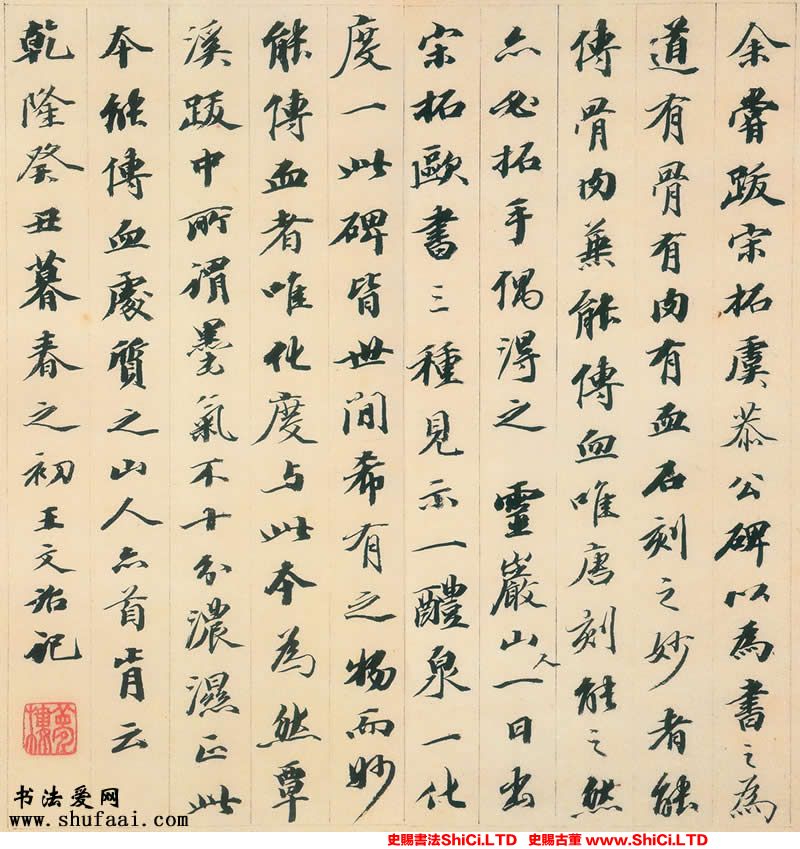 余嘗跋宋拓虞恭公碑以為書之為
道有骨有肉有血石刻之妙者能
傳骨肉無能傳血唯唐刻能之然
亦必拓手偶得之 靈巖山人一日出
宋拓歐書三種見示一醴泉一化
度一此碑皆世間希有之物而妙
能傳血者唯化度与此本為然覃
溪跋中所謂墨氣不十分濃濕正此
本能傳血處質之山人亦首肯云
乾隆癸丑暮春之初王文治記
书法爱网
www.shufaai.com
史賜書法ShiCi.LTD 史賜古董 www.ShiCi.LTD